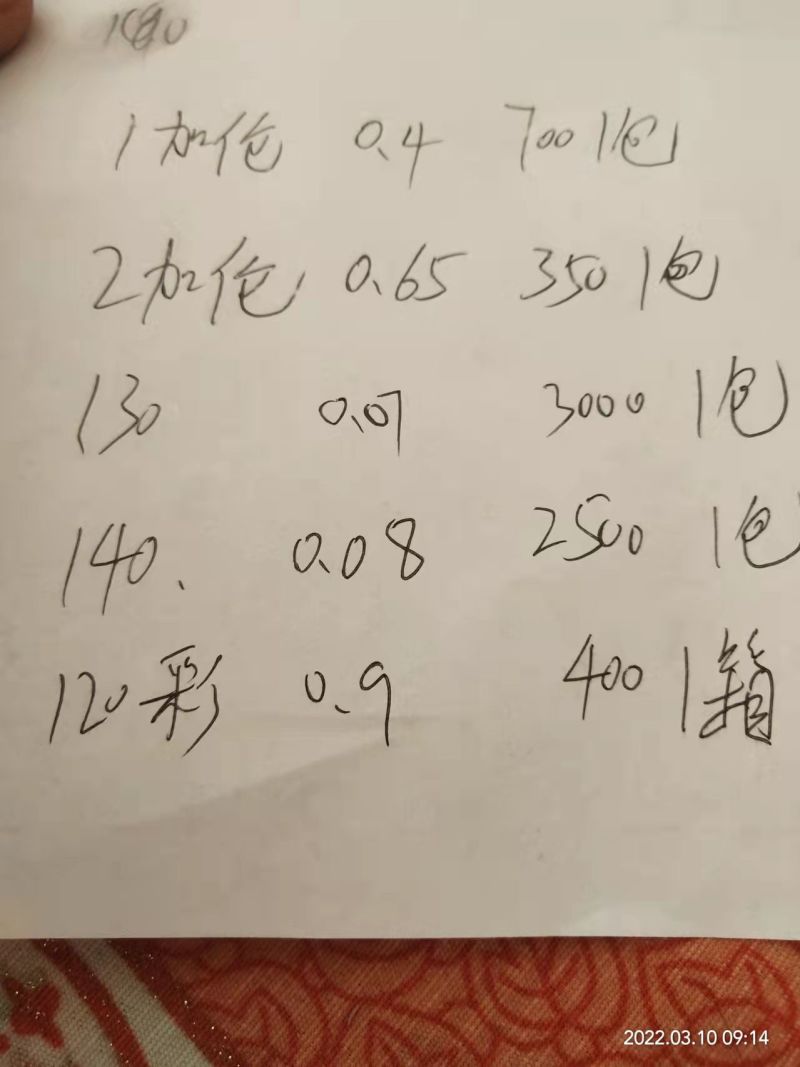 1加仑 0.4 700 1包
2加仑 0.65 350 1包
130 0.07 3000 1包
140. 0.08 2500 1包
120彩 0.9 400 1箱
2022.03.10 09:14